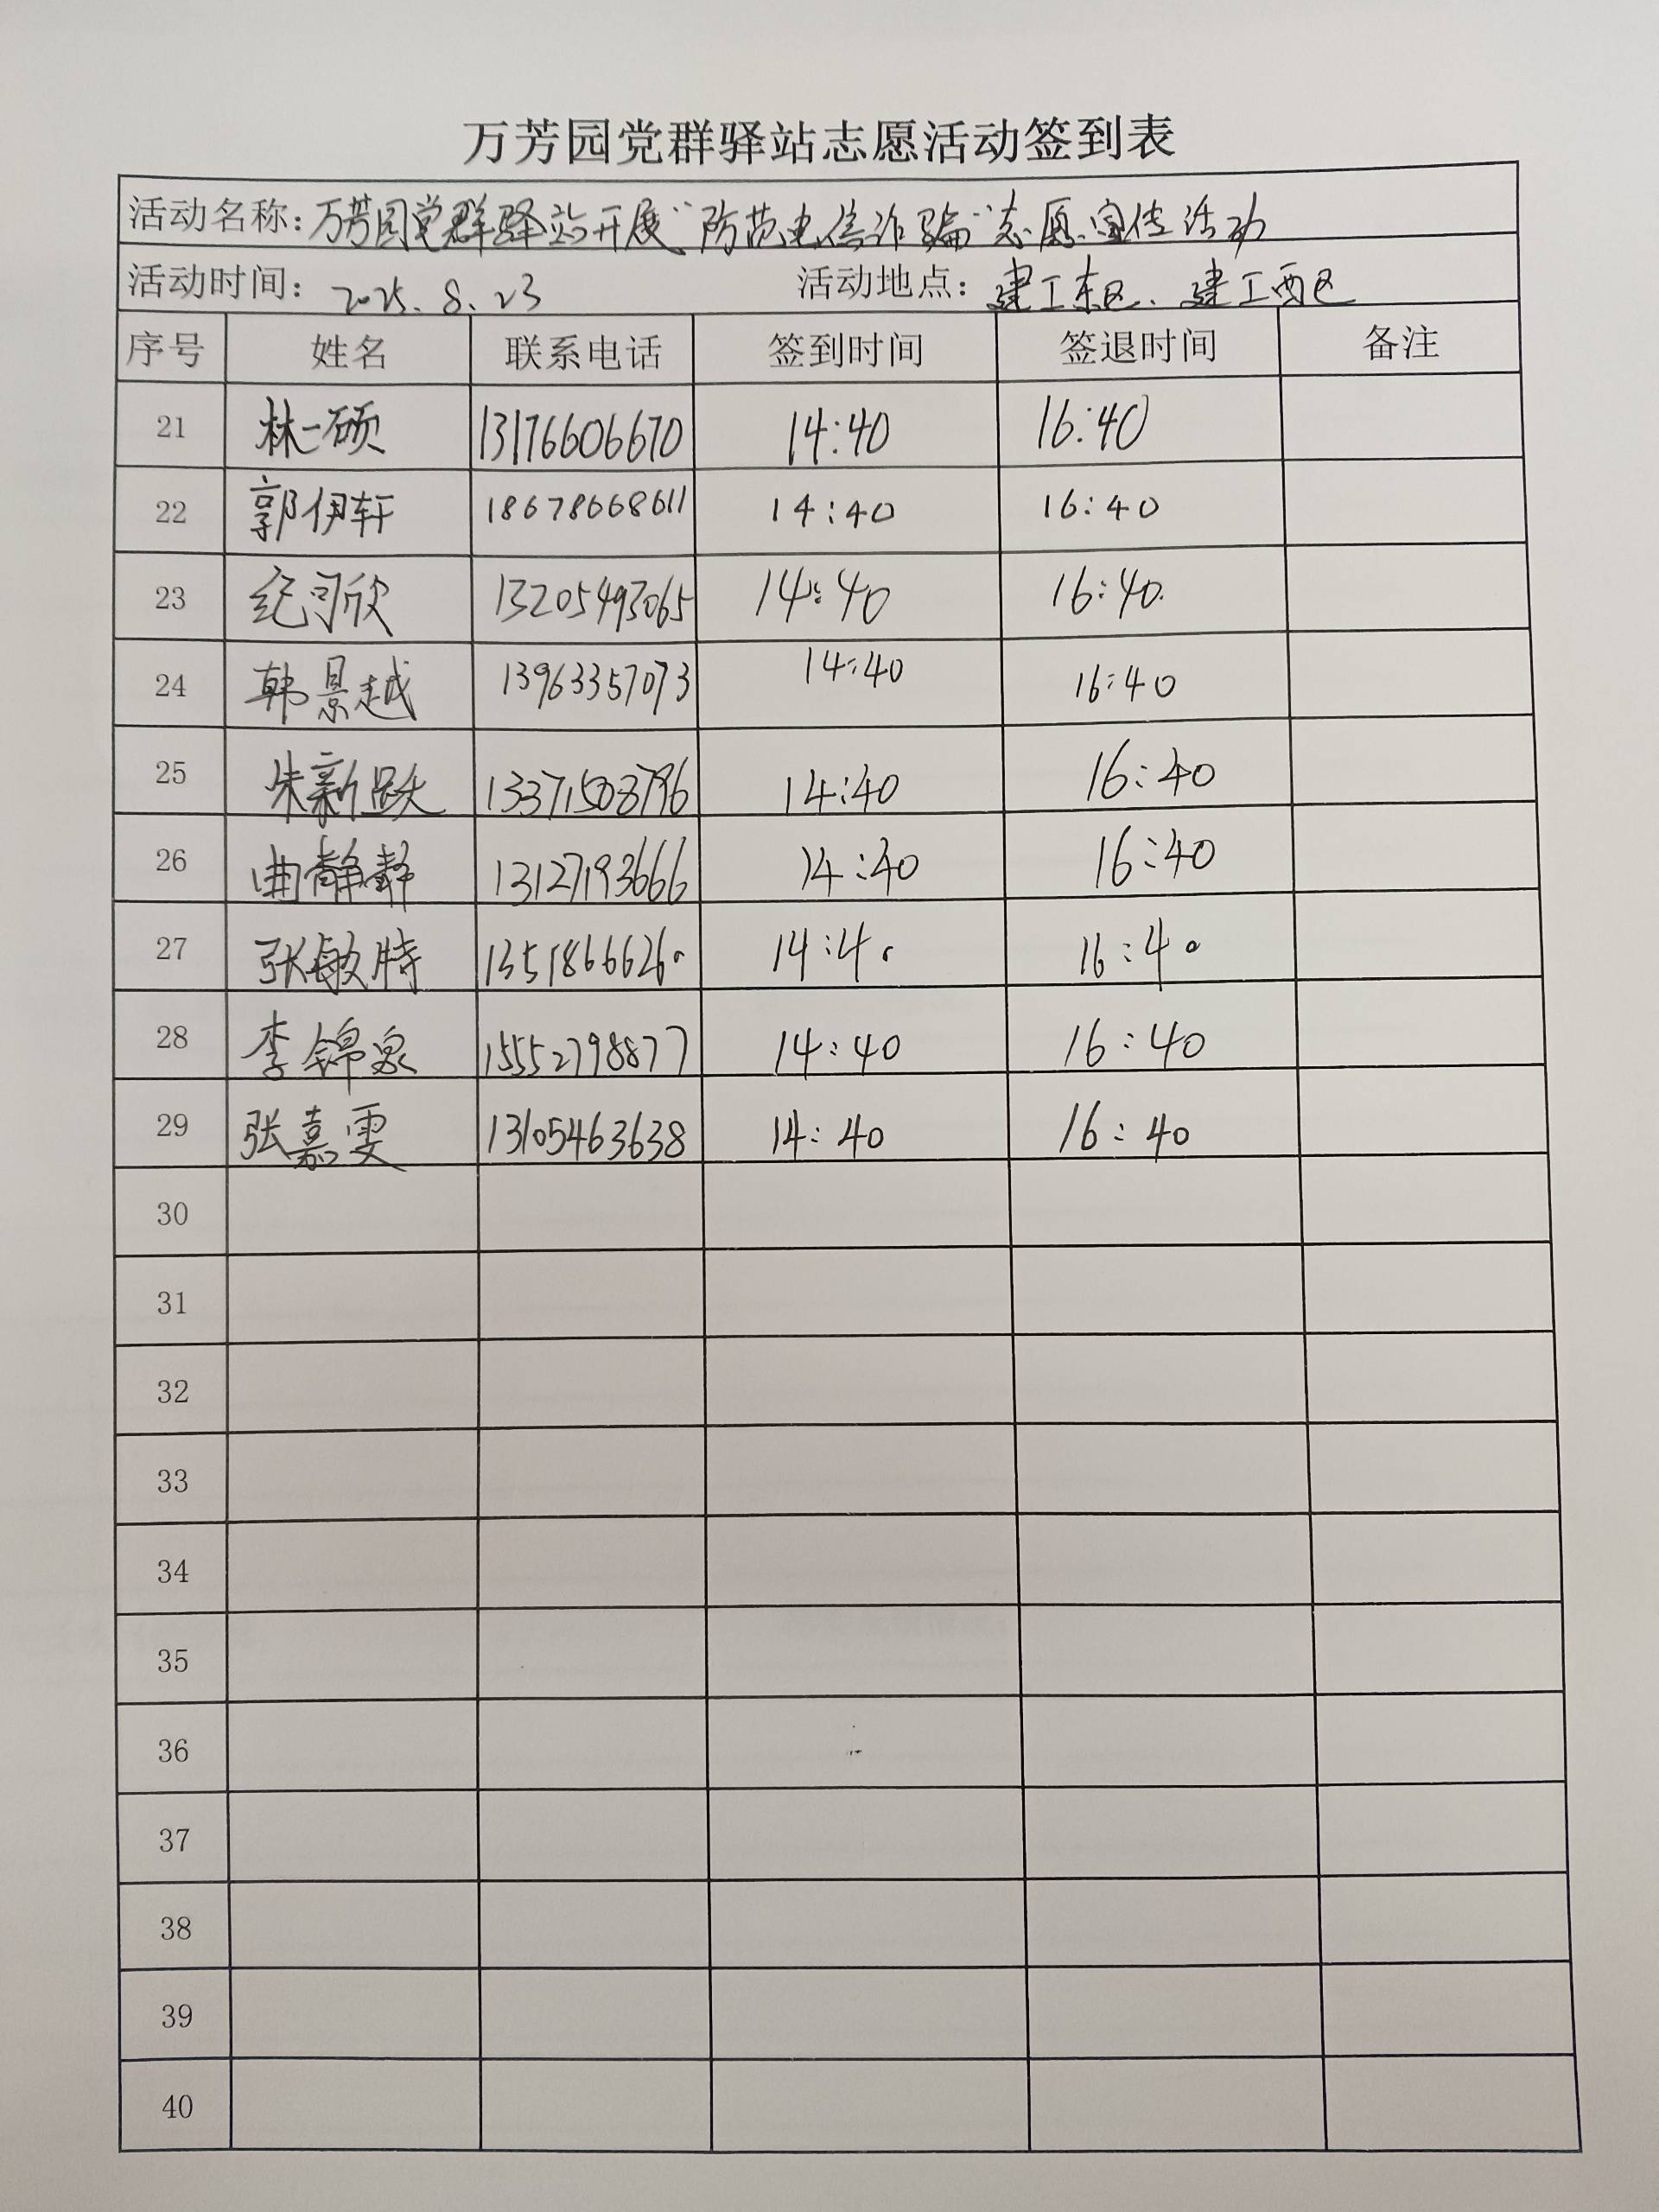 万芳园党群驿站志愿活动签到表
活动名称：万芳园党群驿站开展“防范电信诈骗”志愿宣传活动
活动时间：2025.8.23 活动地点：建工东区、建工西区
序号 姓名 联系电话 签到时间 签退时间 备注
21 林一硕 13176606670 14:40 16:40
22 郭伊轩 18678668611 14:40 16:40
23 纪闫欣 13205493065 14:40 16:40
24 韩景越 13963357073 14:40 16:40
25 朱新跃 14:40 16:40
26 曲静静 13127193666 14:40 16:40
27 张敏特 13518666260 14:40 16:40
28 李锦泉 15552798877 14:40 16:40
29 张嘉雯 13105463638 14:40 16:40
30
31
32
33
34
35
36
37
38
39
40